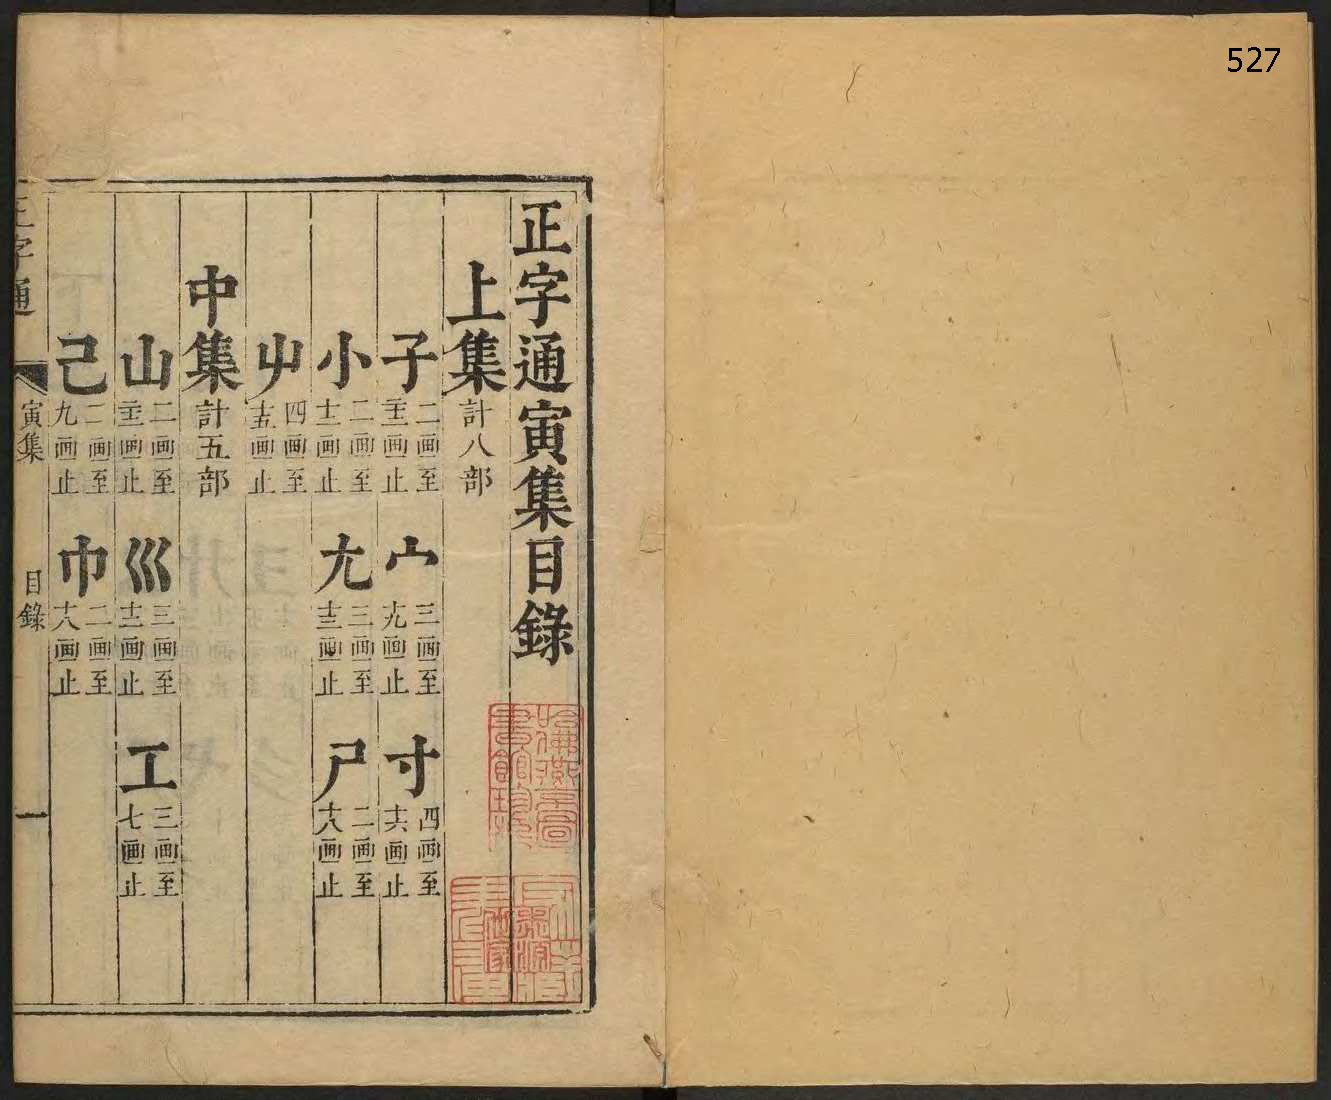 527
正字通寅集目錄
上集 計八部
子 二画至二十一画止 宀 三画至十九画止 寸 四画至十六画止
小 二画至十二画止 尢 三画至十三画止 尸 二画至十八画止
屮 四画至十五画止
中集 計五部
山 二画至二十一画止 巛 三画至十二画止 工 三画至七画止
己 二画至九画止 巾 二画至十八画止
正字通 寅集 目錄 一
哈佛燕京圖書館珍藏印